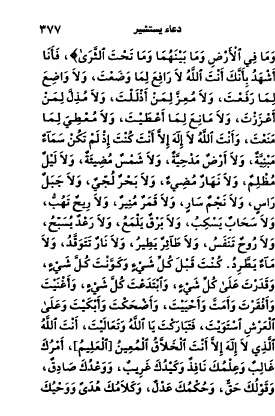 دعاء يستشير ٣٧٧
وَمَا فِي الْأَرْضِ وَمَا بَيْنَهُمَا وَمَا تَحْتَ الثَّرَىٰ﴾، فَأَنَا
أَشْهَدُ بِأَنَّكَ أَنْتَ اللَّهُ لَا رَافِعَ لِمَا وَضَعْتَ، وَلَا وَاضِعَ
لِمَا رَفَعْتَ، وَلَا مُعِزَّ لِمَنْ أَذْلَلْتَ، وَلَا مُذِلَّ لِمَنْ
أَعْزَزْتَ، وَلَا مَانِعَ لِمَا أَعْطَيْتَ، وَلَا مُعْطِيَ لِمَا
مَنَعْتَ، وَأَنْتَ اللَّهُ لَا إِلَهَ إِلَّا أَنْتَ كُنْتَ إِذْ لَمْ تَكُنْ سَمَآءٌ
مَبْنِيَّةٌ، وَلَا أَرْضٌ مَدْحِيَّةٌ، وَلَا شَمْسٌ مُضِيئَةٌ، وَلَا لَيْلٌ
مُظْلِمٌ، وَلَا نَهَارٌ مُضِيءٌ، وَلَا بَحْرٌ لُجِّيٌّ، وَلَا جَبَلٌ
رَاسٍ، وَلَا نَجْمٌ سَارٍ، وَلَا قَمَرٌ مُنِيرٌ، وَلَا رِيحٌ تَهُبُّ،
وَلَا سَحَابٌ يَسْكِبُ، وَلَا بَرْقٌ يَلْمَعُ، وَلَا رَعْدٌ يُسَبِّحُ،
وَلَا رُوحٌ تَنَفَّسُ، وَلَا طَآئِرٌ يَطِيرُ، وَلَا نَارٌ تَتَوَقَّدُ، وَلَا
مَآءٌ يَطَّرِدُ. كُنْتَ قَبْلَ كُلِّ شَيْءٍ وَكَوَّنْتَ كُلَّ شَيْءٍ،
وَقَدَرْتَ عَلَىٰ كُلِّ شَيْءٍ، وَابْتَدَعْتَ كُلَّ شَيْءٍ، وَأَغْنَيْتَ
وَأَفْقَرْتَ وَأَمَتَّ وَأَحْيَيْتَ، وَأَضْحَكْتَ وَأَبْكَيْتَ وَعَلَىٰ
الْعَرْشِ اسْتَوَيْتَ، فَتَبَارَكْتَ يَا اللَّهُ وَتَعَالَيْتَ، أَنْتَ اللَّهُ
الَّذِي لَا إِلَهَ إِلَّا أَنْتَ الْخَلَّاقُ الْمُعِينُ [الْعَلِيمُ]، أَمْرُكَ
غَالِبٌ وَعِلْمُكَ نَافِذٌ وَكَيْدُكَ غَرِيبٌ، وَوَعْدُكَ صَادِقٌ،
وَقَوْلُكَ حَقٌّ، وَحُكْمُكَ عَدْلٌ، وَكَلَامُكَ هُدًى وَوَحْيُكَ